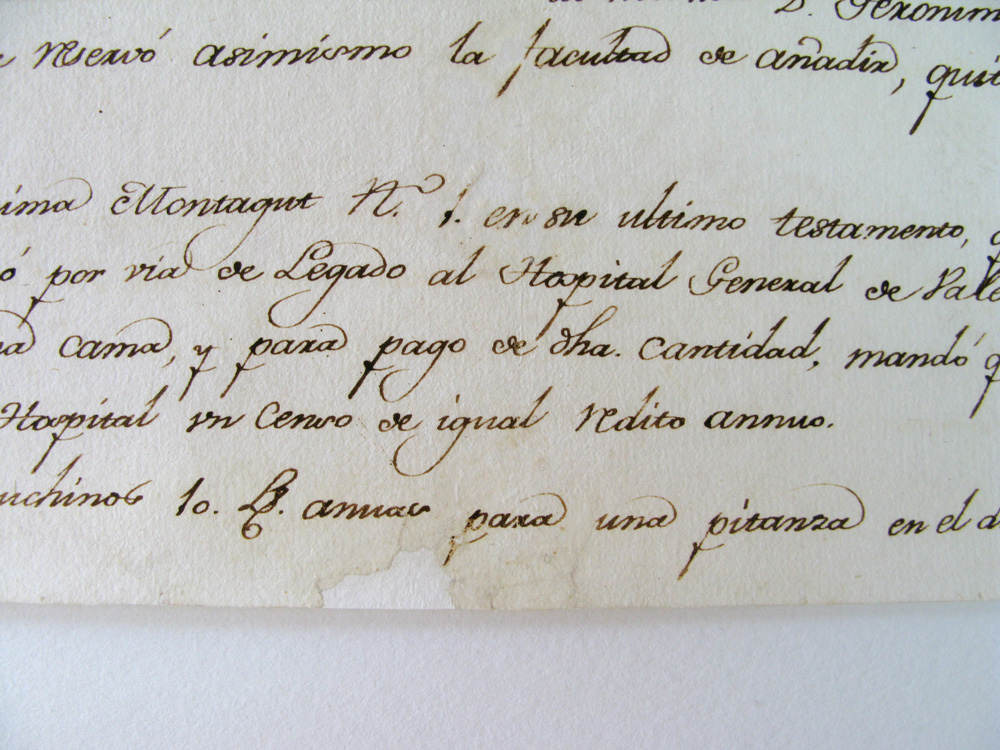 D. Geronim
reservó asimismo la facultad de añadir, quit
ima Montagut N. 1. en su ultimo testamento, q
ó por via de Legado al Hospital General de Vale
na cama, y para pago de dha. Cantidad, mandó q
Hospital vn Censo de igual redito annuo.
uchinos 10. L. anuas para una pitanza en el d